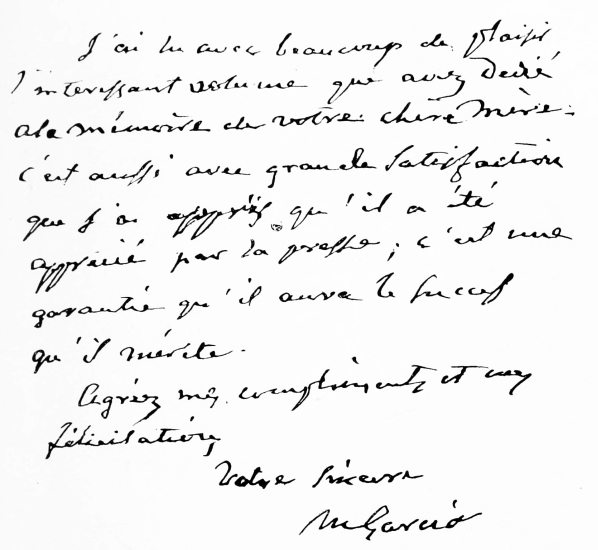 J'ai lu avec beaucoup de plaisir
l'interessant volume que avez dedié
a la mémoire de votre chère mère.
c'est aussi avec grande satisfaction
que j'ai appris qu'il a été
apprécié par la presse; c'est une
garantie qu'il aura le succès
qu'il mérite.
Agréez mes compliments et mes
félicitations,
Votre sincère
M Garcia